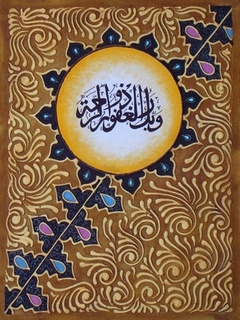 وربك الغفور ذو الرحمة